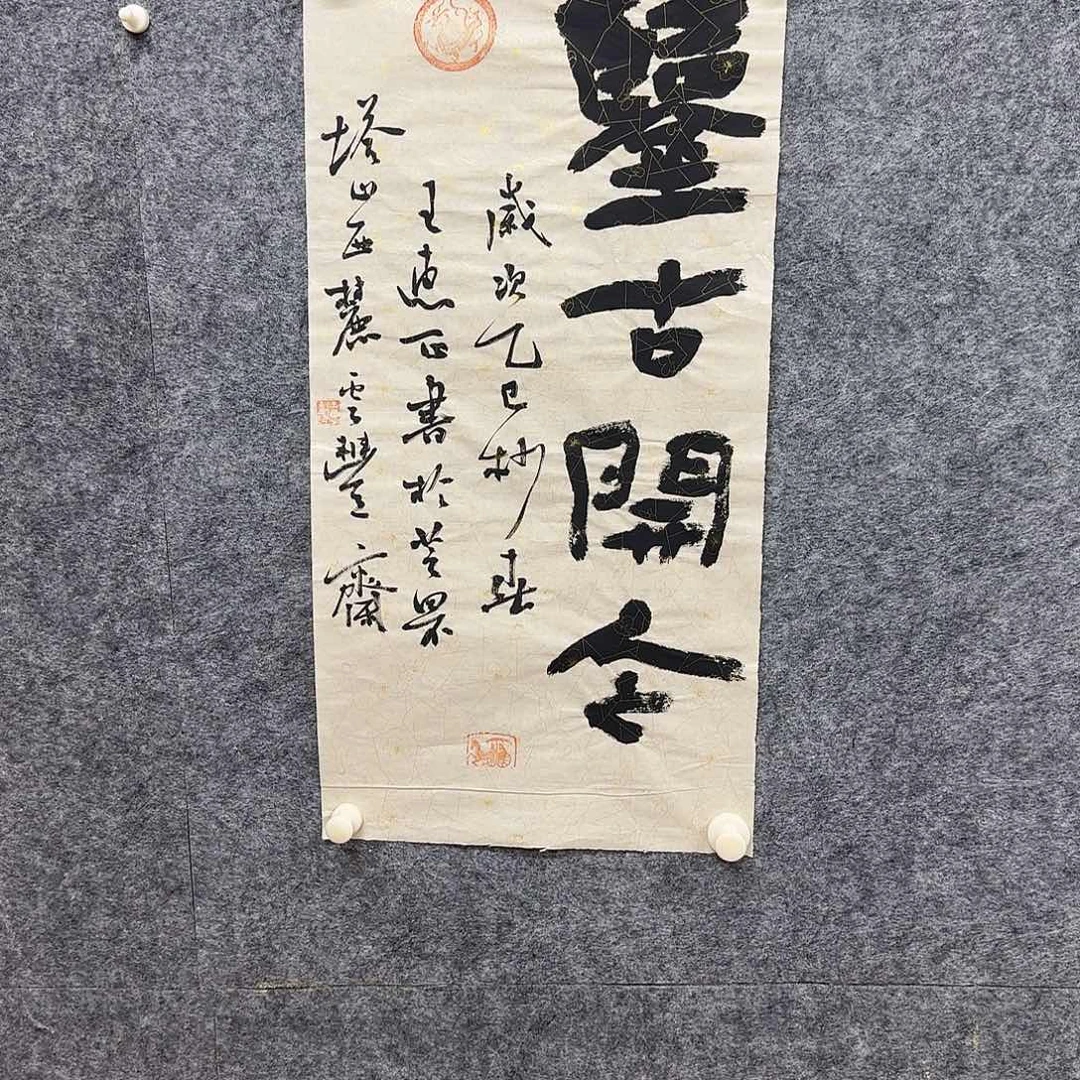 鑒古開今
歲次乙巳杪春
王惠正書於芝罘
塔山西麓雲豐齋